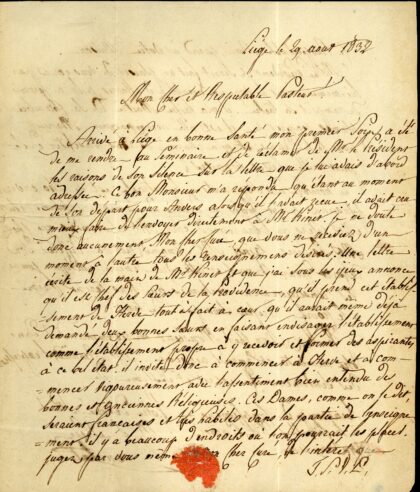 Liège le 29 aout 1832
Mon Cher et Respectable Pasteur!
Arrivé a Liège en bonne Santé mon premier Soin a été
de me rendre au Seminaire et de réclamer de Mr le Président
les raisons de son silence sur la lettre que je lui avais d'abord
adressée. Ce bon Monsieur m'a repondu qu'étant au moment
de son départ pour Anvers lorsqu'il l'avait recue, il avait cru
mieux faire de l'envoyer directement à Mr Kinet je ne doute
donc aucunement Mon cher que vous ne receviez d'un
moment à l'autre tous les renseignemens désirés. Une lettre
écrite de la main de Mr Kinet et que j'ai sous les yeux annonce
qu'il est chef des Sœurs de la providence, qu'il prend cet établis-
-sement de tout à fait a cœur, qu'il aurait même déjà
demandé deux bonnes Sœurs en faisant envisager l'établissement
comme l'établissement propre a y recevoir et former des aspirantes
à ce bel état. il invite donc à commencer à et a com-
mencer vigoureusement avec l'assentiment bien entendu des
bonnes et anciennes Religieuses. Ces Dames, comme on le dit,
seraient françaises et très habiles dans la partie de l'enseigne-
-ment. il y a beaucoup d'endroits ou l'on pourrait les placer.
jugez par vous même Mon cher de l'interet que
T.S.V.P.